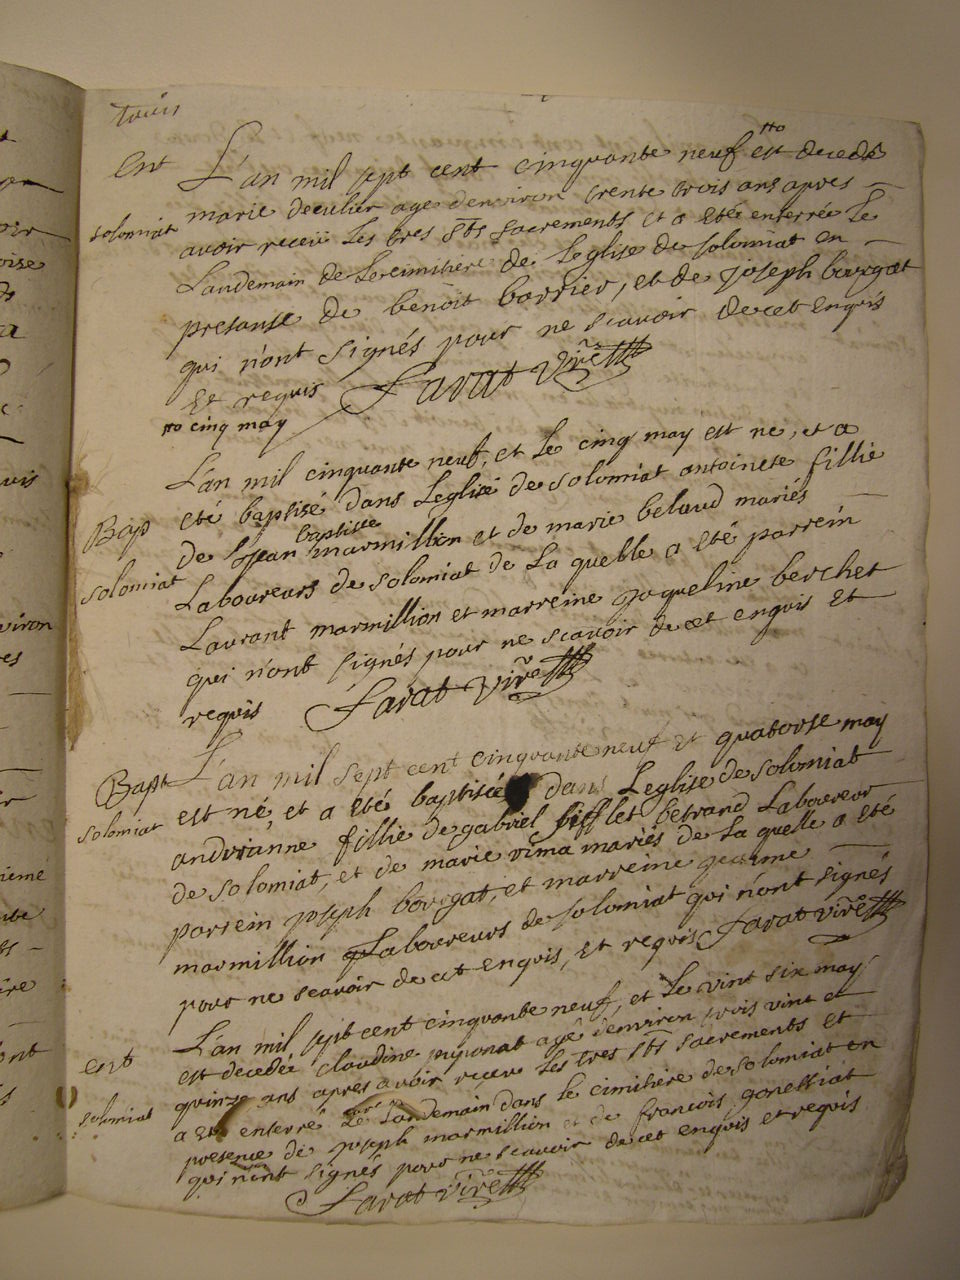 trois
Ent
solomiat
L'an mil sept cent cinquante neuf est decedé
marie deculier age denviron trente trois ans apres
avoir receu les tres sts sacrements et a eté enterrée le
Landemain de Lecimitiere de Leglise de solomiat en
presanse de benoit borrier, et de joseph bourgat
qui n'ont signés pour ne scavoir decet enquis
Et requis Farat vire
cinq may
Bap
solomiat
L'an mil cinquante neuf, et Le cinq may est ne, et a
eté baptisé dans Leglise de solomiat antoinete fillie
baptiste
de Jean marmillion et de marie belaud mariés
Laboureurs de solomiat de La quelle a eté parrein
Laurant marmillion et marreine jaqueline berchet
qui n'ont signés pour ne scavoir de cet enquis Et
requis Farat vire
Bapt
solomiat
L'an mil sept cent cinquante neuf et quatorse may
est né, et a eté baptisée dans Leglise de solomiat
andrianne fillie de gabriel betrand Laboureur
de solomiat, et de marie mariés de La quelle a eté
parrein joseph bourgat, et marreine jeanne
marmillion Laboureurs de solomiat qui n'ont signés
pour ne scavoir de cet enquis, et requis Farat vire
ent
solomiat
L'an mil sept cent cinquante neuf, et Le vint six may
est decedée claudine agé denviron trois vint et
quinze ans apres avoir receu les tres sts sacrements et
a eté enterré Le Landemain dans le cimitiere de solomiat en
presence de joseph marmillion et de francois gonettiat
qui n'ont signés pour ne scavoir de cet enquis et requis
Farat vire